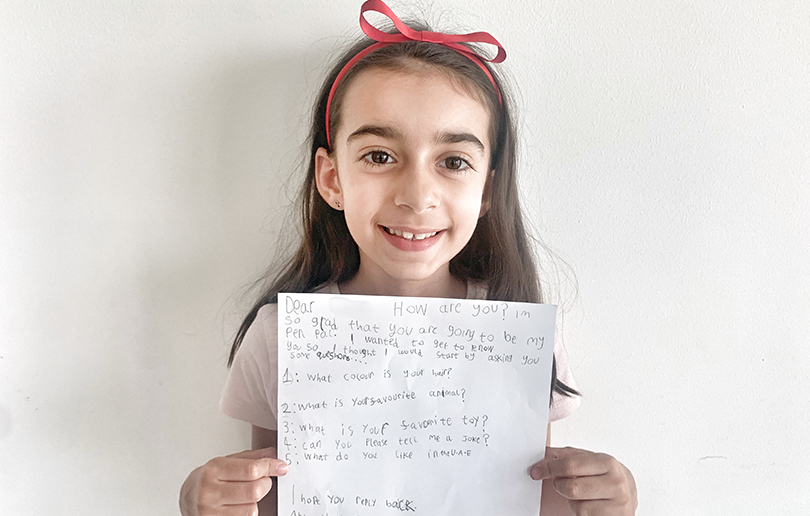 Dear How are you? im
so glad that you are going to be my
pen pal. I wanted to get to know
you so I thought I would start by asking you
some questions....
1: what colour is your hair?
2: what is your favourite animal?
3: what is your favourite toy?
4: can you please tell me a joke?
5: what do you like in the U.A.E
I hope you reply back.